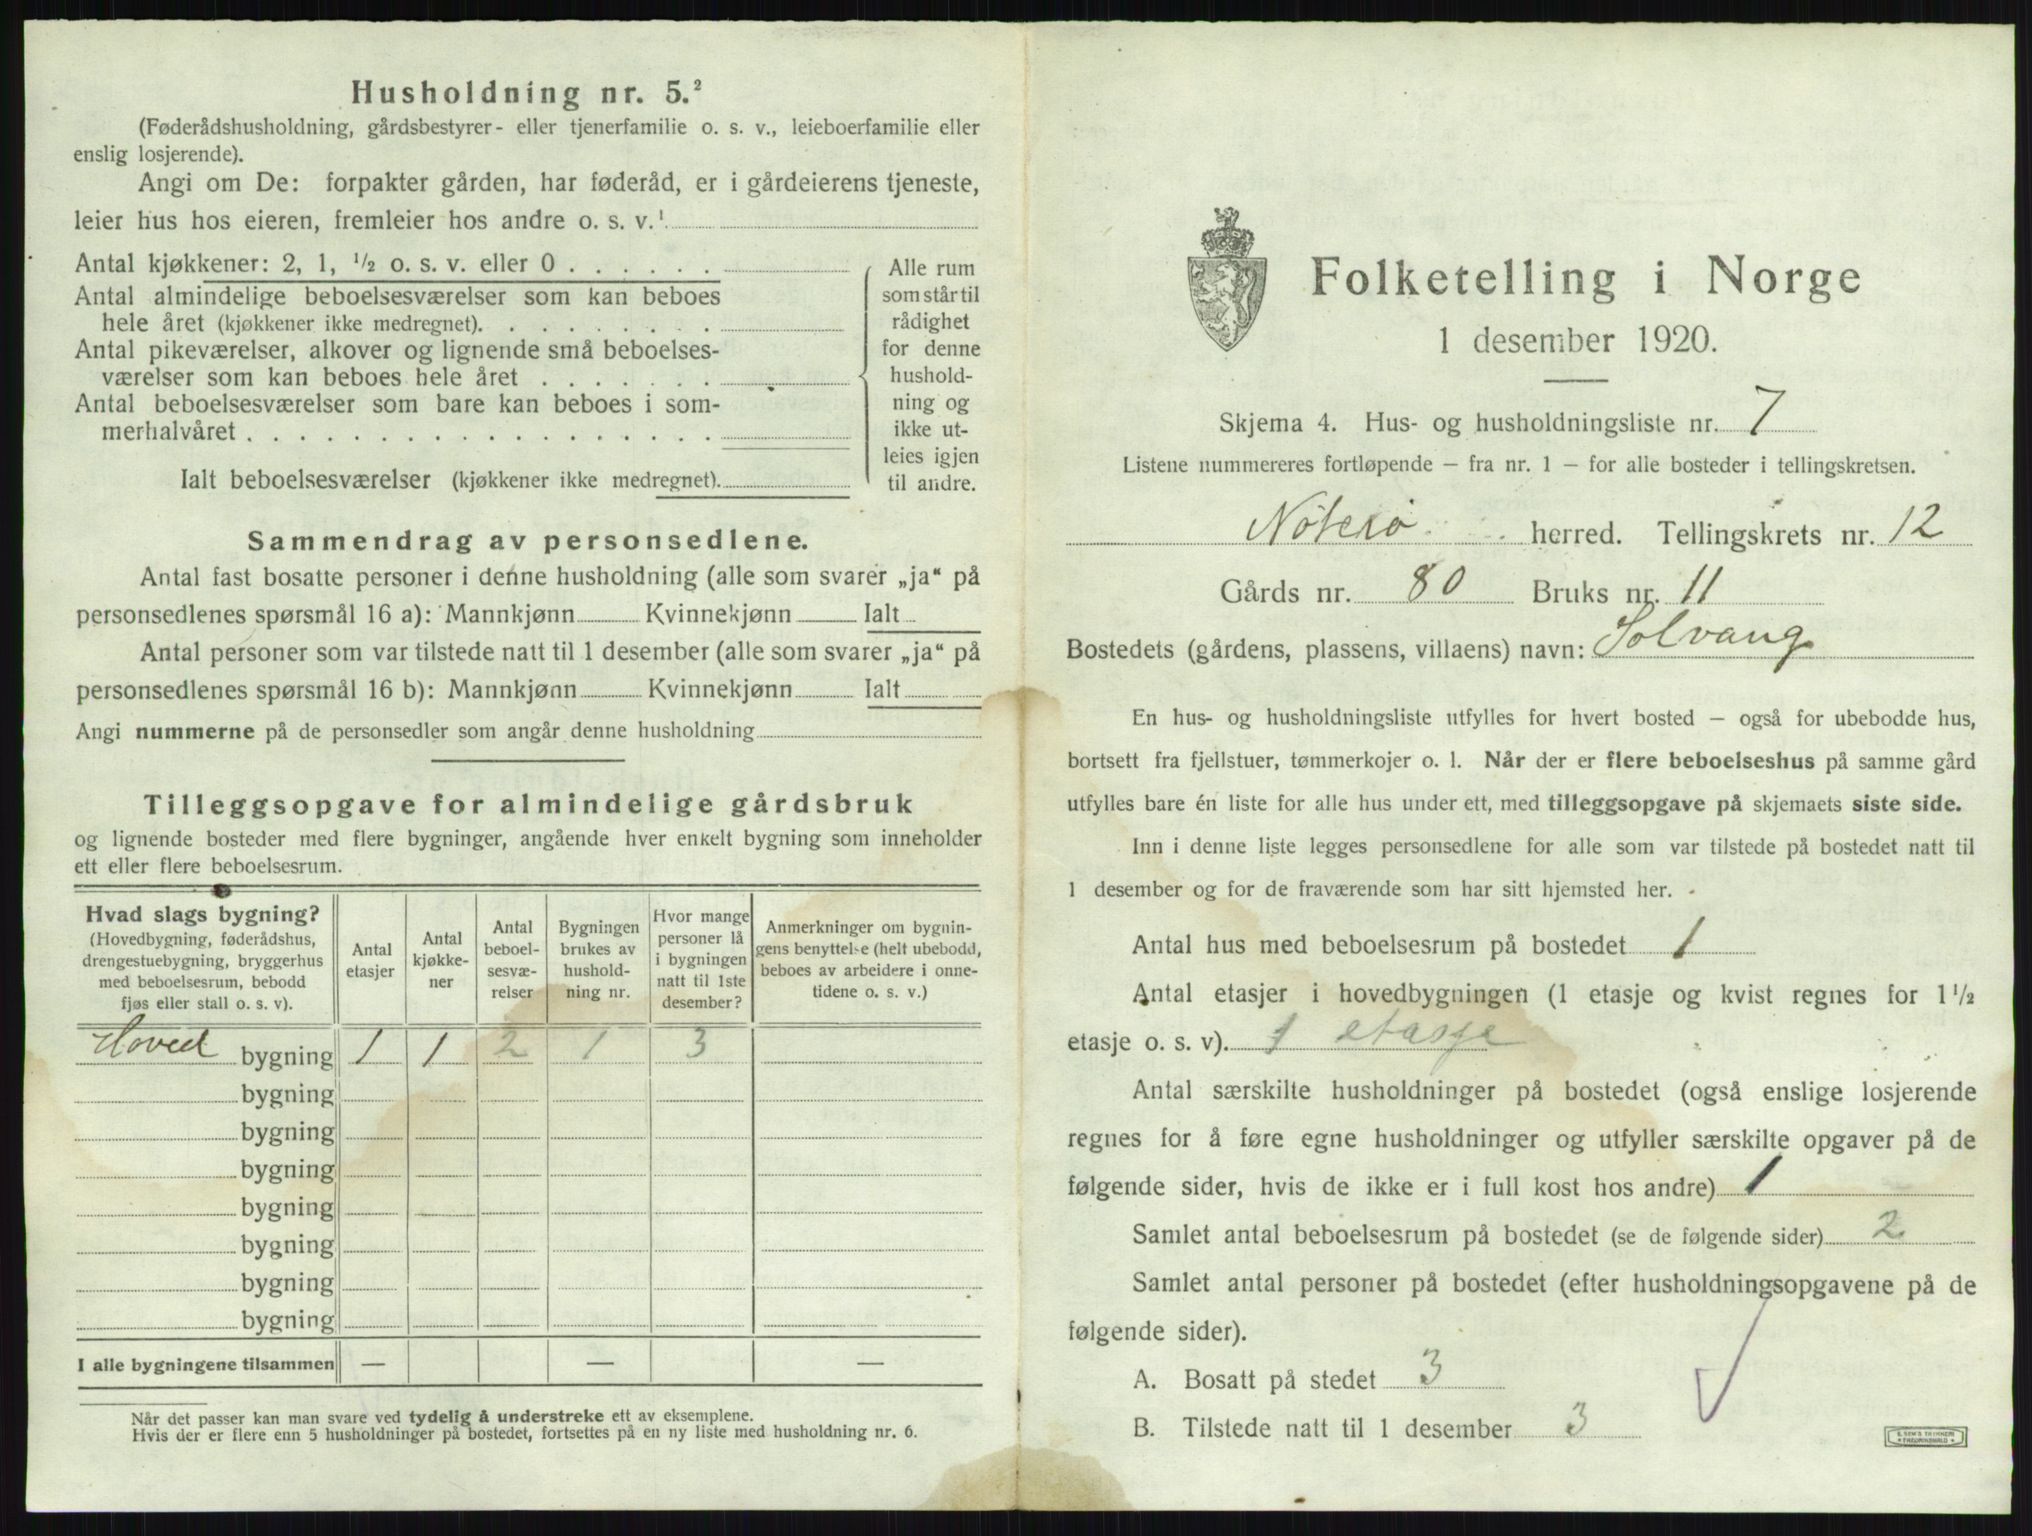 Husholdning nr. 5.²
(Føderådshusholdning, gårdsbestyrer- eller tjenerfamilie o. s. v., leieboerfamilie eller
enslig losjerende).
Angi om De: forpakter gården, har føderåd, er i gårdeierens tjeneste,
leier hus hos eieren, fremleier hos andre o. s. v.¹
Antal kjøkkener: 2, 1, ½ o. s. v. eller 0 . . . . . .
Antal almindelige beboelsesværelser som kan beboes
hele året (kjøkkener ikke medregnet). . . . . . . . .
Antal pikeværelser, alkover og lignende små beboelses-
værelser som kan beboes hele året . . . . . . .
Antal beboelsesværelser som bare kan beboes i som-
merhalvåret . . . . . . . . . . . . . . . . . .
Ialt beboelsesværelser (kjøkkener ikke medregnet).
Alle rum
som står til
rådighet
for denne
hushold-
ning og
ikke ut-
leies igjen
til andre.
Sammendrag av personsedlene.
Antal fast bosatte personer i denne husholdning (alle som svarer „ja“ på
personsedlenes spørsmål 16 a): Mannkjønn Kvinnekjønn Ialt
Antal personer som var tilstede natt til 1 desember (alle som svarer „ja“ på
personsedlenes spørsmål 16 b): Mannkjønn Kvinnekjønn Ialt
Angi nummerne på de personsedler som angår denne husholdning
Tilleggsopgave for almindelige gårdsbruk
og lignende bosteder med flere bygninger, angående hver enkelt bygning som inneholder
ett eller flere beboelsesrum.
Hvad slags bygning?
(Hovedbygning, føderådshus,
drengestuebygning, bryggerhus
med beboelsesrum, bebodd
fjøs eller stall o. s. v).
Antal
etasjer
Antal
kjøkke-
ner
Antal
beboel-
sesvæ-
relser
Bygningen
brukes av
hushold-
ning nr.
Hvor mange
personer lå
i bygningen
natt til 1ste
desember?
Anmerkninger om bygnin-
gens benyttelse (helt ubebodd,
beboes av arbeidere i onne-
tidene o. s. v.)
Hoved bygning 1 1 2 1 3
bygning
bygning
bygning
bygning
bygning
bygning
bygning
I alle bygningene tilsammen — — —
Når det passer kan man svare ved tydelig å understreke ett av eksemplene.
Hvis der er flere enn 5 husholdninger på bostedet, fortsettes på en ny liste med husholdning nr. 6.
Folketelling i Norge
1 desember 1920.
Skjema 4. Hus- og husholdningsliste nr. 7
Listene nummereres fortløpende — fra nr. 1 — for alle bosteder i tellingskretsen.
Nøterø herred. Tellingskrets nr. 12
Gårds nr. 80 Bruks nr. 11
Bostedets (gårdens, plassens, villaens) navn: Solvang
En hus- og husholdningsliste utfylles for hvert bosted — også for ubebodde hus,
bortsett fra fjellstuer, tømmerkojer o. l. Når der er flere beboelseshus på samme gård
utfylles bare én liste for alle hus under ett, med tilleggsopgave på skjemaets siste side.
Inn i denne liste legges personsedlene for alle som var tilstede på bostedet natt til
1 desember og for de fraværende som har sitt hjemsted her.
Antal hus med beboelsesrum på bostedet 1
Antal etasjer i hovedbygningen (1 etasje og kvist regnes for 1½
etasje o. s. v). 1 etasje
Antal særskilte husholdninger på bostedet (også enslige losjerende
regnes for å føre egne husholdninger og utfyller særskilte opgaver på de
følgende sider, hvis de ikke er i full kost hos andre) 1
Samlet antal beboelsesrum på bostedet (se de følgende sider) 2
Samlet antal personer på bostedet (efter husholdningsopgavene på de
følgende sider).
A. Bosatt på stedet 3
B. Tilstede natt til 1 desember 3